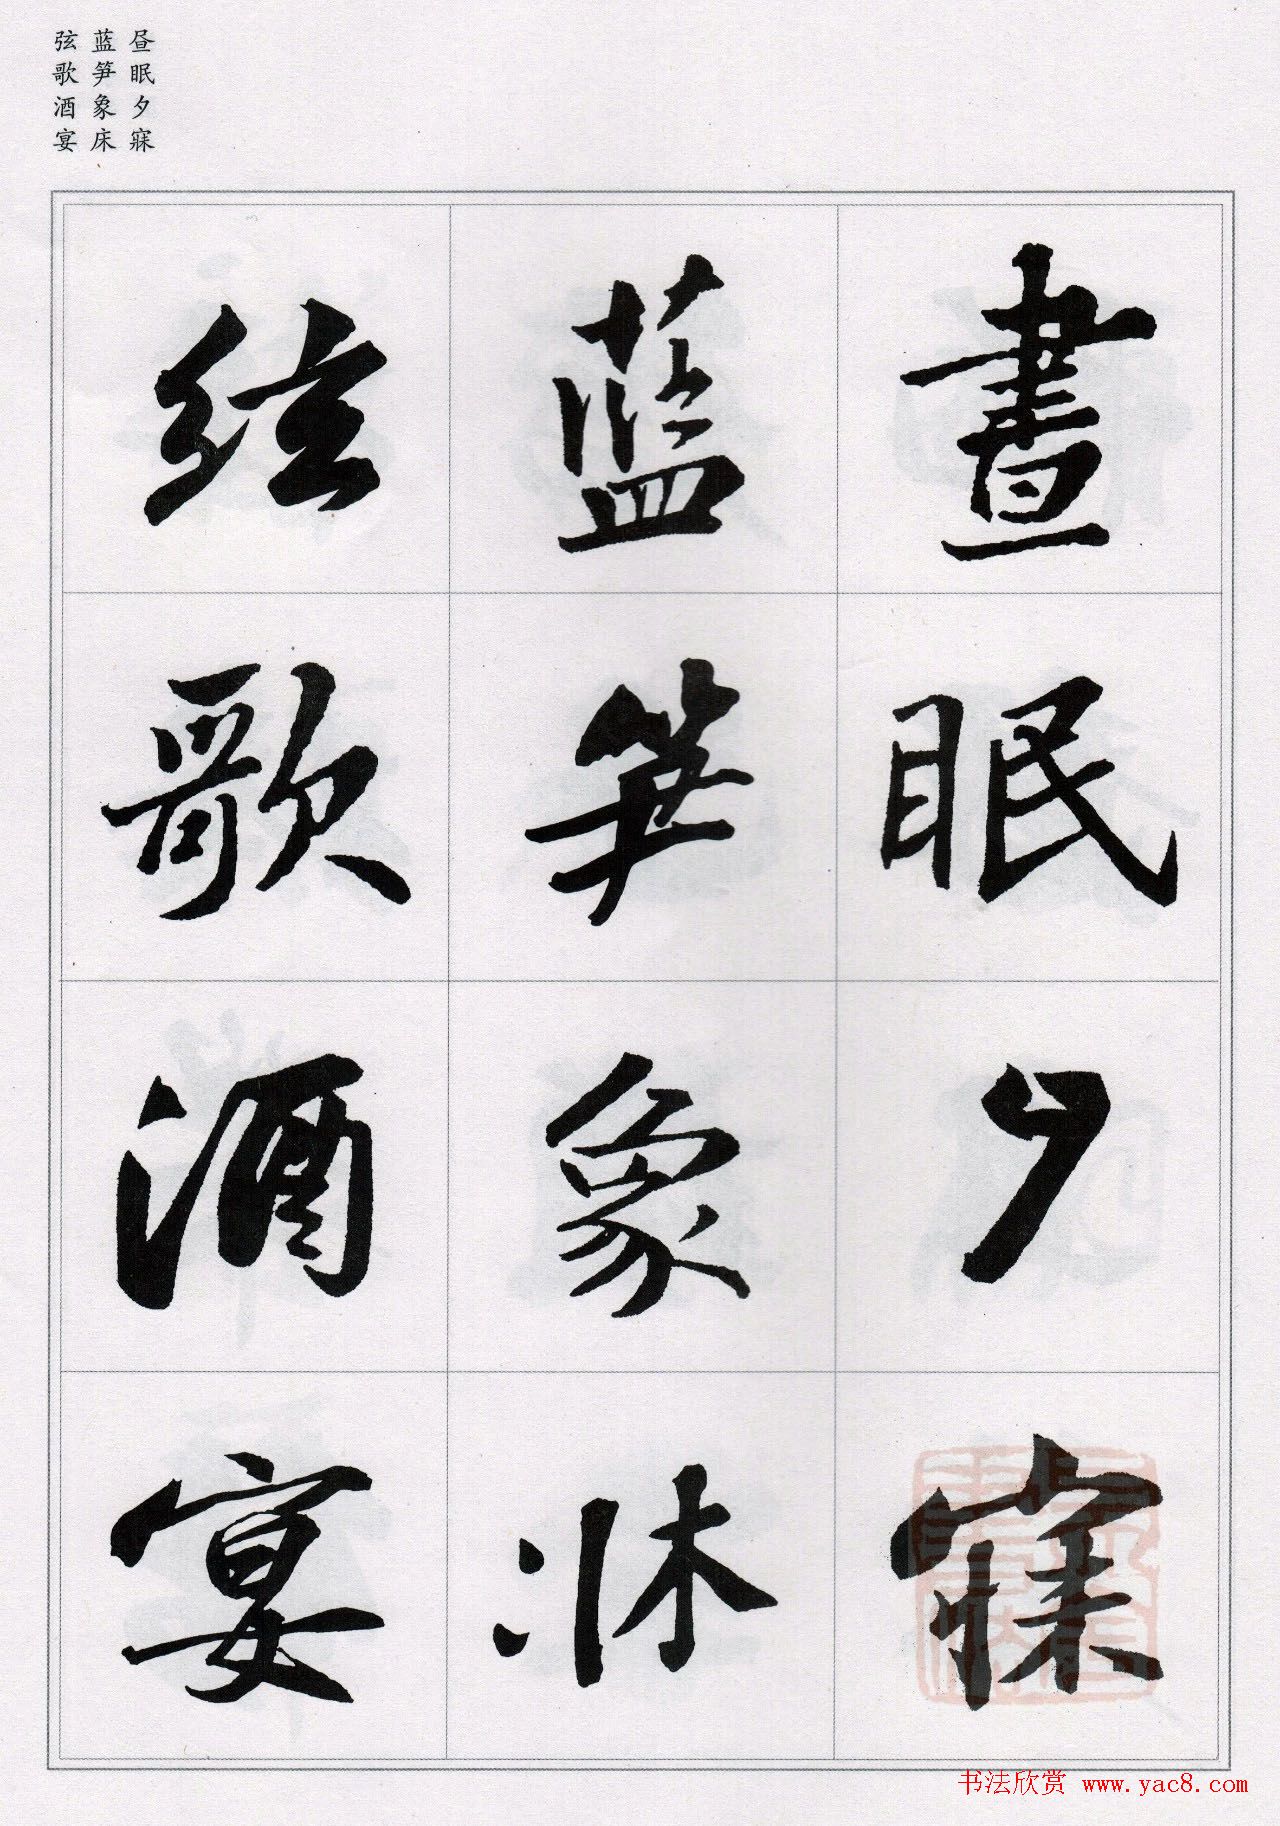 昼眠夕寐
蓝笋象床
弦歌酒宴
晝眠夕寐
藍笋象牀
絃歌酒宴
书法欣赏 www.yac8.com